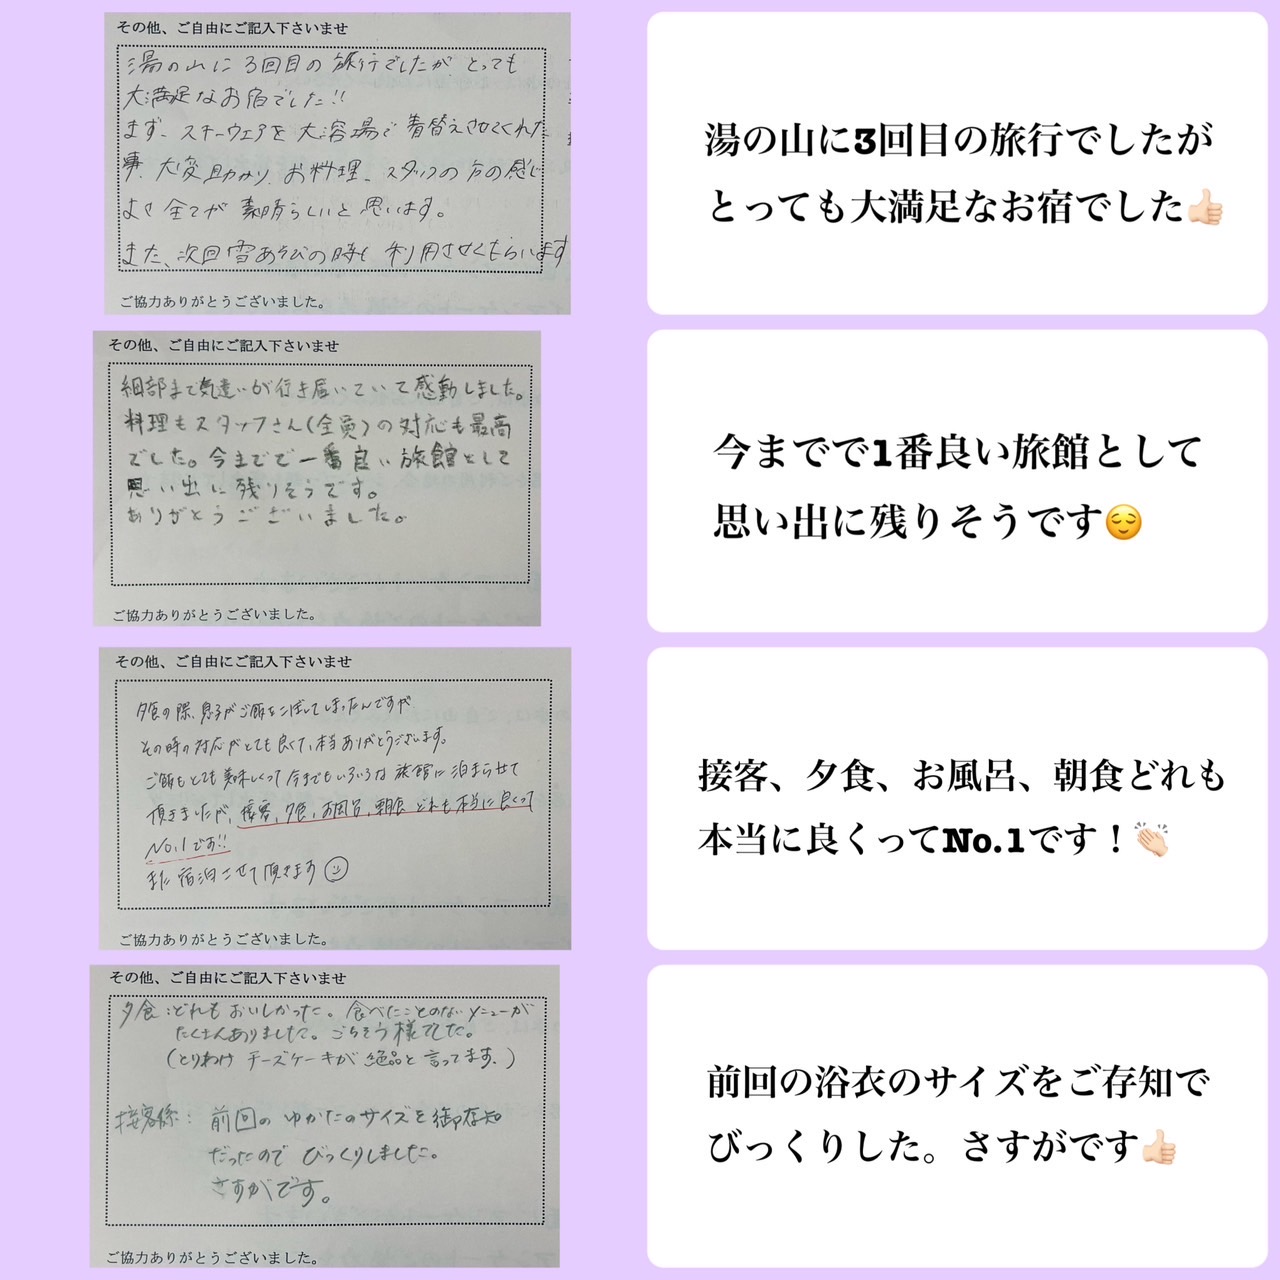 その他、ご自由にご記入下さいませ
湯の山に3回目の旅行でしたが とっても
大満足なお宿でした!!
まず、スキーウェアを大浴場で着替えさせてくれた
事、大変助かり、お料理、スタッフの方の感じ
よさ全てが素晴らしいと思います。
また、次回雪あそびの時も利用させてもらいます
ご協力ありがとうございました。
湯の山に3回目の旅行でしたが
とっても大満足なお宿でした👍🏻
その他、ご自由にご記入下さいませ
細部まで気遣いが行き届いていて感動しました。
料理もスタッフさん(全員)の対応も最高
でした。今までで一番良い旅館として
思い出に残りそうです。
ありがとうございました。
ご協力ありがとうございました。
今までで1番良い旅館として
思い出に残りそうです😌
その他、ご自由にご記入下さいませ
夕食の際、息子がご飯をこぼしてしまったんですが
その時の対応がとても良くて、本当ありがとうございます。
ご飯もとても美味しくって今までもいろいろな旅館に泊まらせて
頂きましたが、接客、夕食、お風呂、朝食どれも本当に良くって
No.1です!!
また宿泊させて頂きます☺
ご協力ありがとうございました。
接客、夕食、お風呂、朝食どれも
本当に良くってNo.1です！👏🏻
その他、ご自由にご記入下さいませ
夕食:どれもおいしかった。食べたことのないメニューが
たくさんありました。ごちそう様でした。
(とりわけ チーズケーキが絶品と言ってます。)
接客係: 前回の ゆかたのサイズを御存知
だったので びっくりしました。
さすがです。
ご協力ありがとうございました。
前回の浴衣のサイズをご存知で
びっくりした。さすがです👍🏻